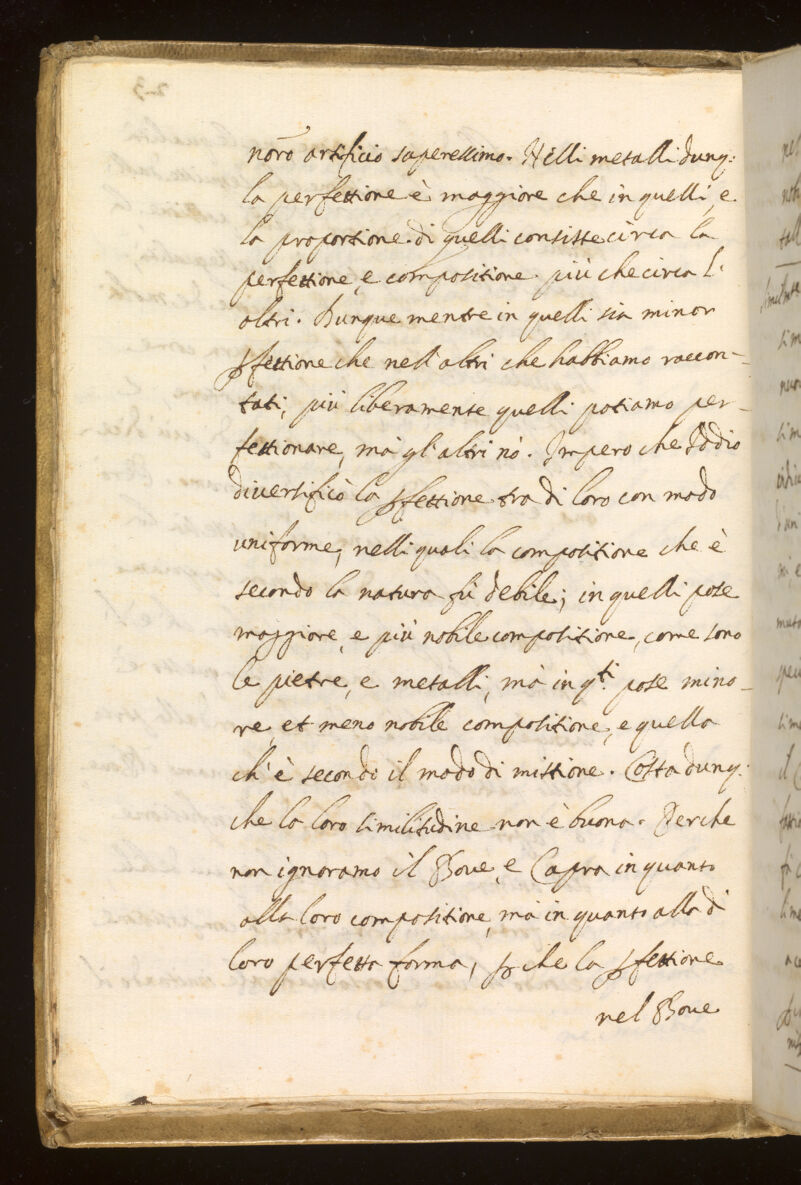 nōro artificio saperessimo. Nelli metalli dunq:
la perfettione è maggiore che in quelli, e
la proportione di quelli consiste circa la
perfettione, e compositione più che circa l'
altri. Dunque mentre in quelli sia minor
ꝑfettione che nell'altri che habbiamo raccon-
tati, più liberamente quelli potiamo per-
fettionare, mà gl'altri nò. Impero che Iddio
diversificò la ꝑfettione tra di loro con modo
uniforme, nelli quali la compositione che è
secondo la natura fù debile; in quelli pose
maggiore, e più nobile compositione, come sono
le pietre, e metalli, mà in q.ti pose mino-
re, et meno nobile compositione, e quella
ch'è secondo il modo di mistione. Costa dunq:
che la loro similitudine non è buona. Perche
non ignoramo il Bove, e Capra in quanto
alla loro compositione, mà in quanto alla di
loro perfetta forma, ꝑche la ꝑfettione
nel Bove